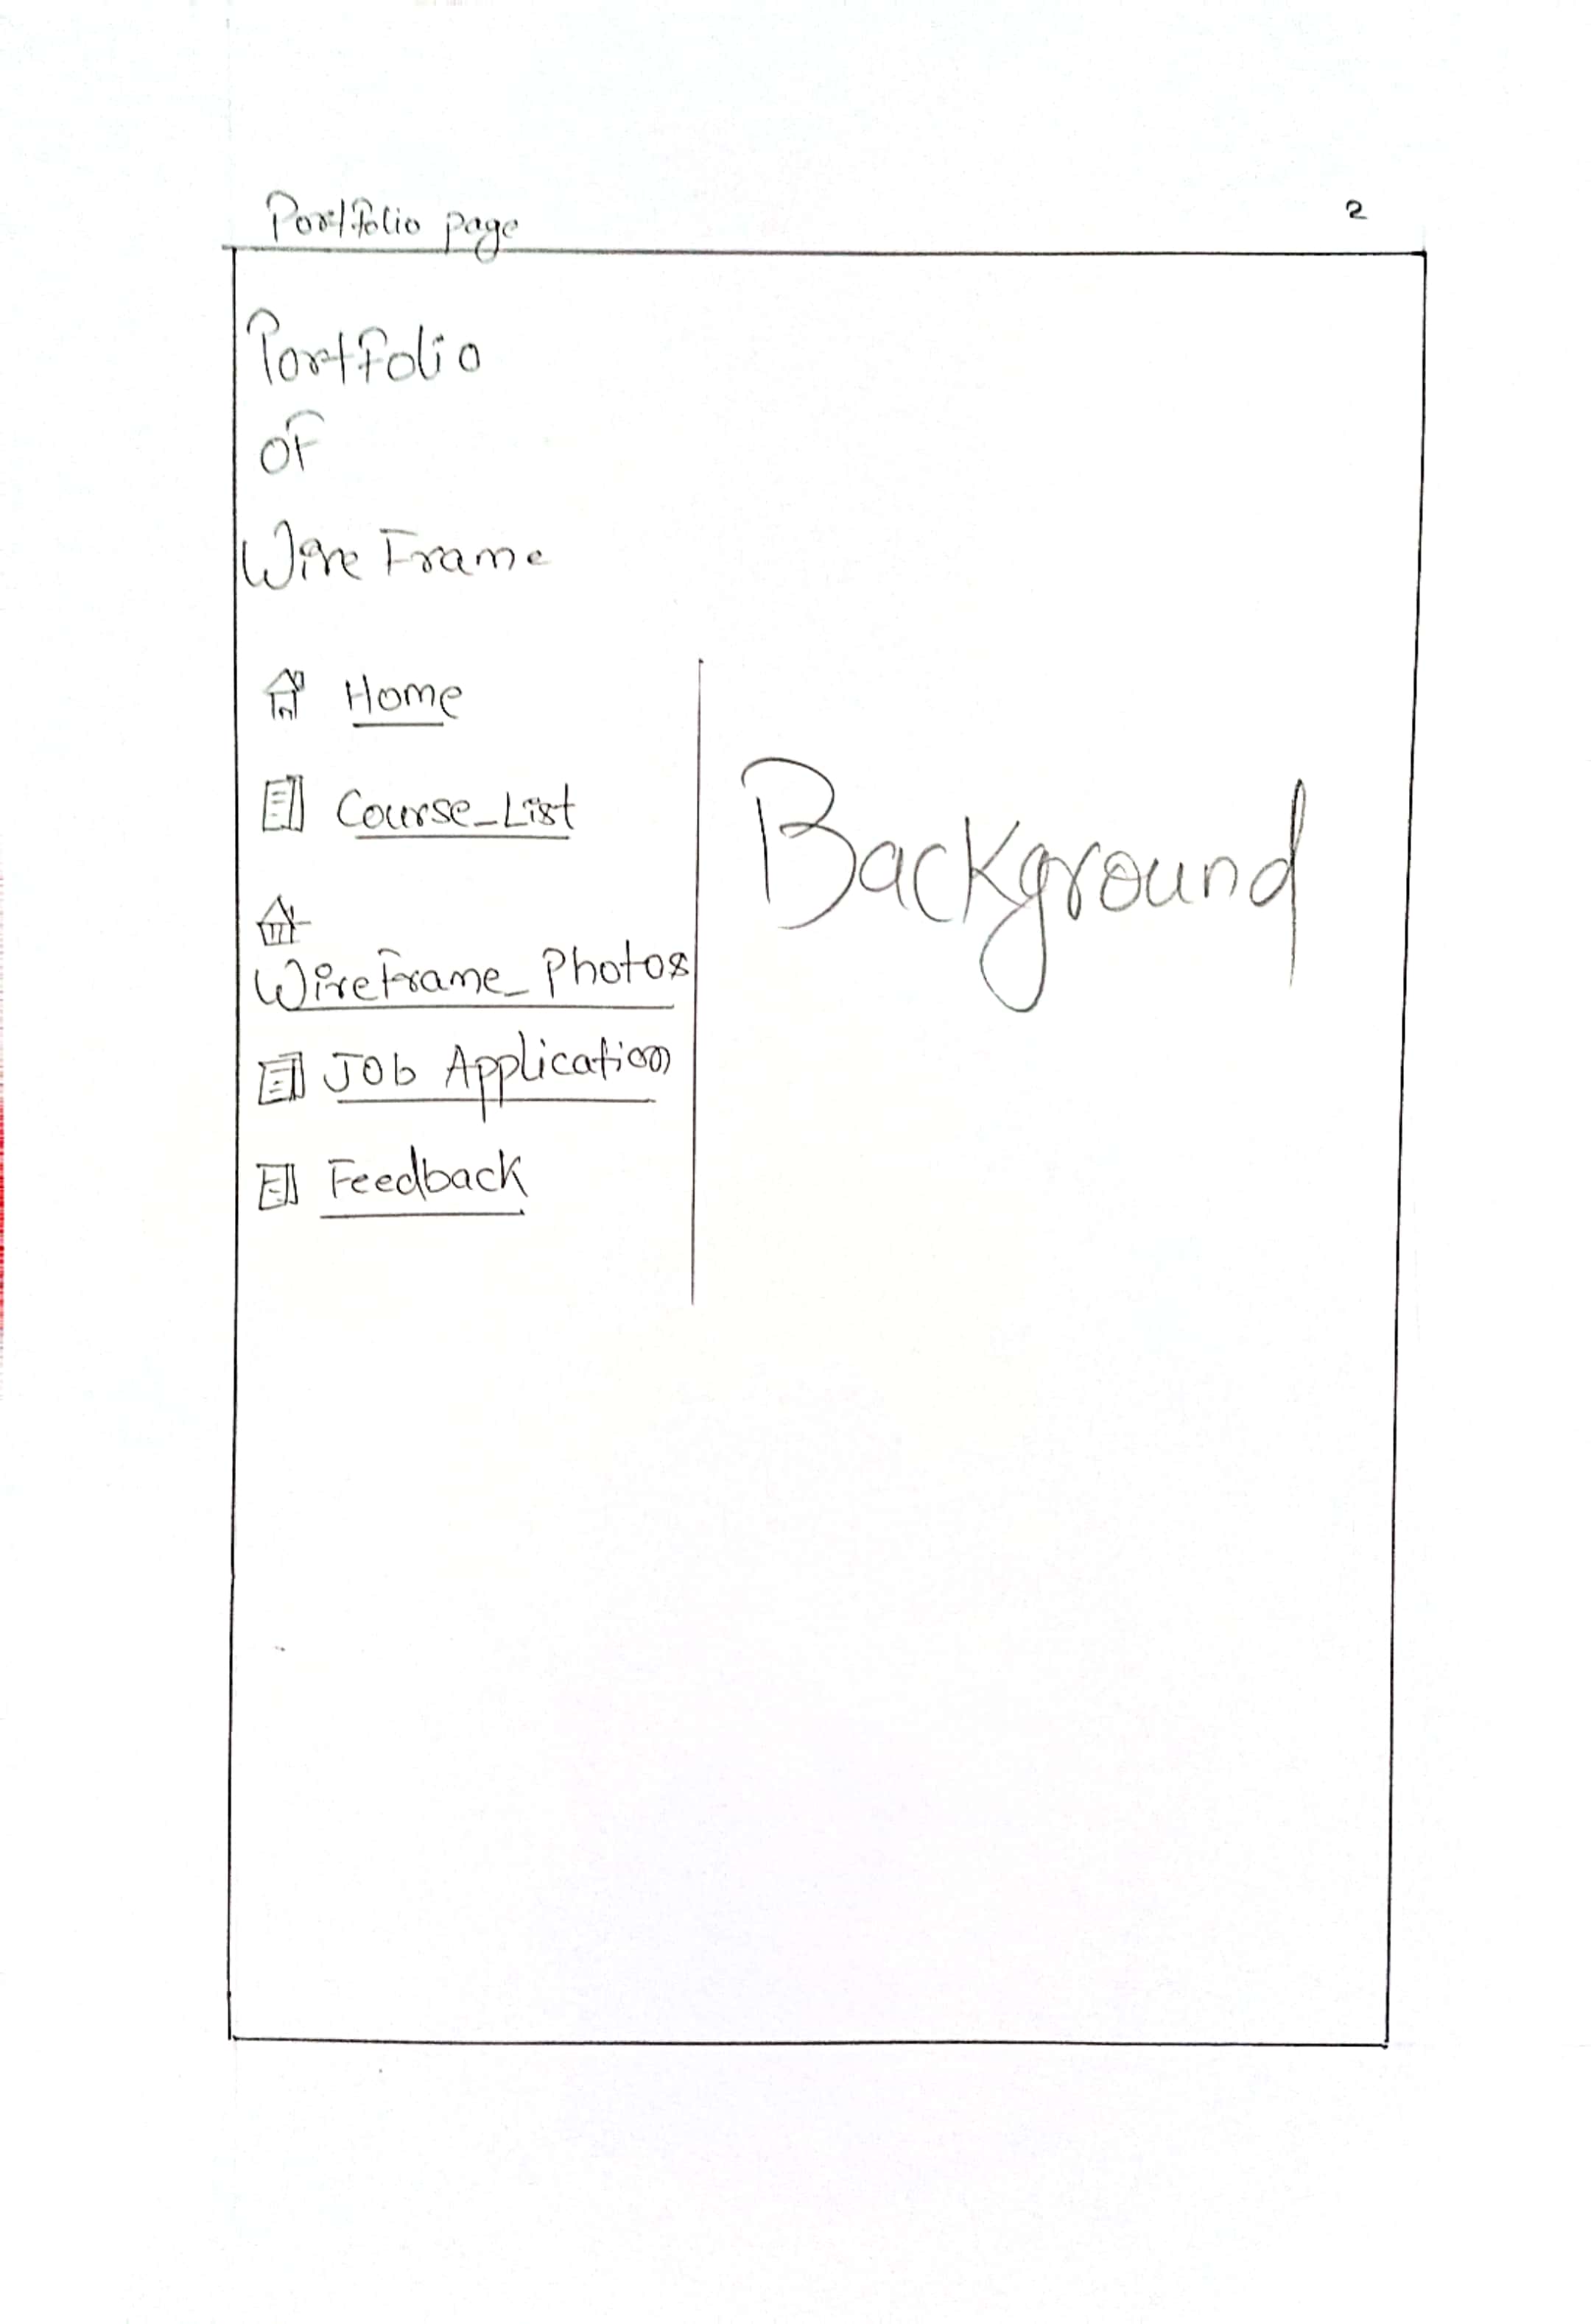 Portfolio page
2
Portfolio
of
Wire Frame
Home
Course_List
WireFrame_Photos
Job Application
Feedback
Background